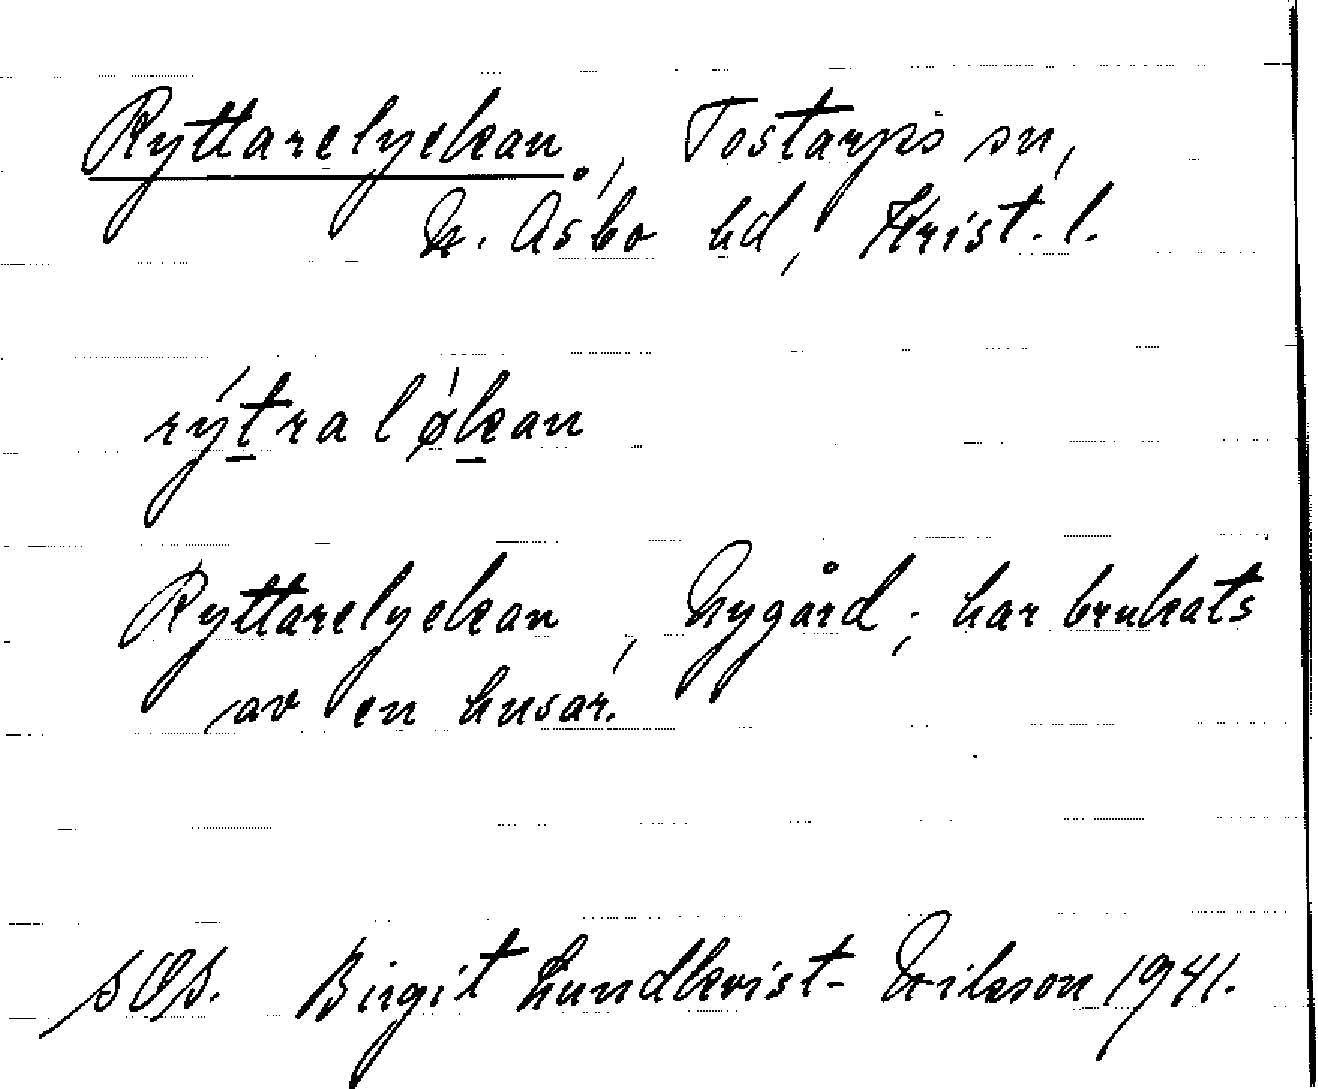 Ryttarelyckan, Tostarps sn,
N. Åsbo hd, Krist. l.
rýt̲ra lǿk̲an
Ryttarelyckan, Nygård; har brukats
av en husar.
s Os. Birgit Lundkvist-Nilsson 1941.